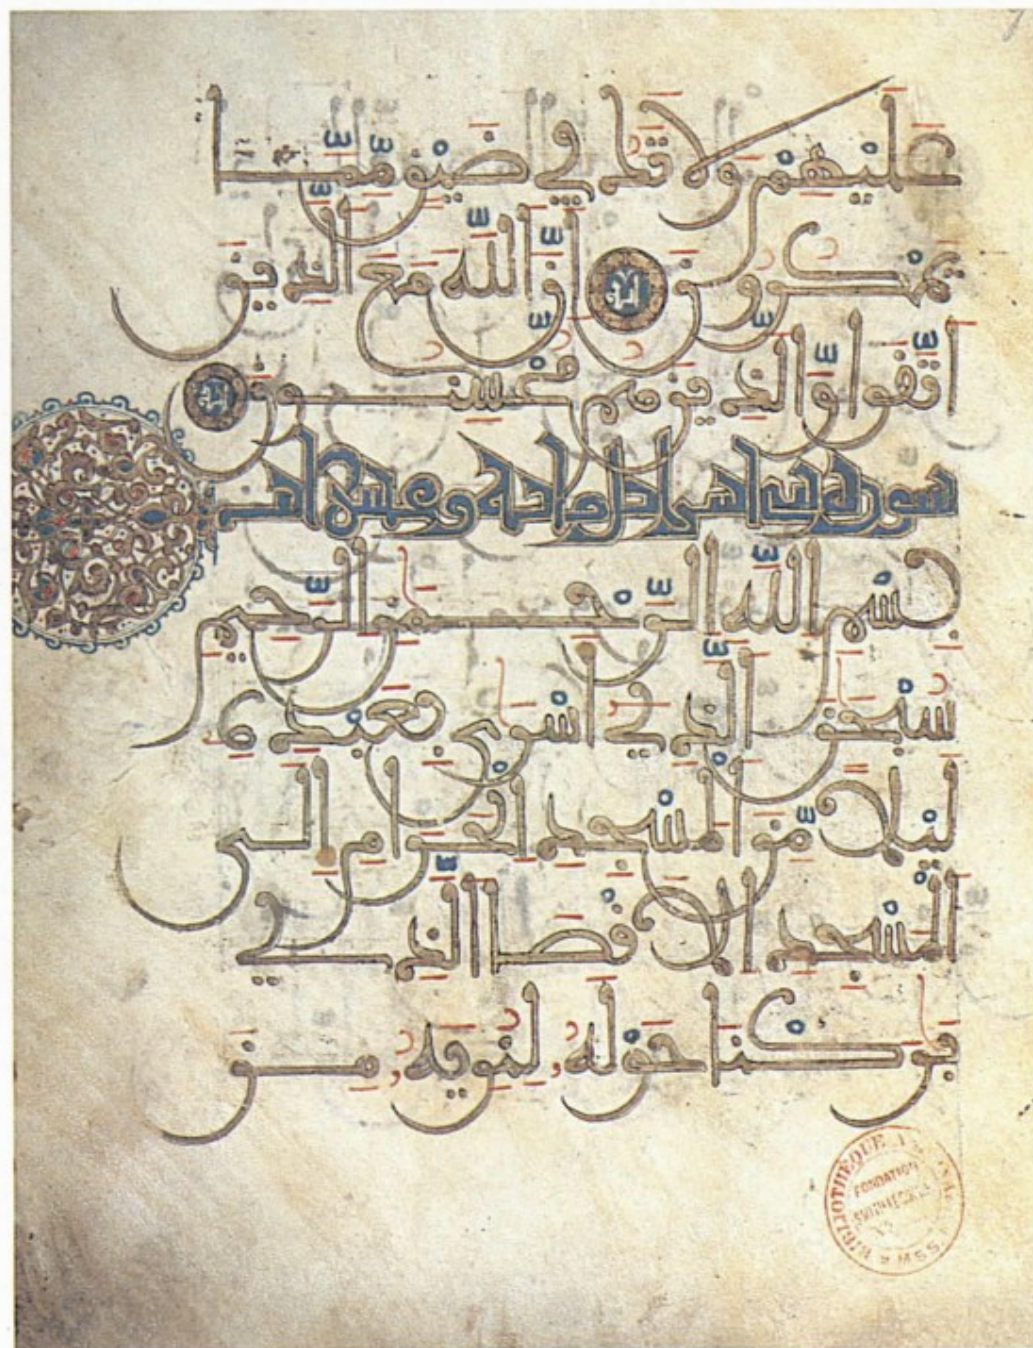 عليهم ولا تك في ضيق مما
يمكرون ان الله مع الذين
اتقوا والذين هم محسنون
سورة بني اسرايل ماية وعشر
بسم الله الرحمن الرحيم
سبحن الذي اسرى بعبده
ليلا من المسجد الحرام الى
المسجد الاقصا الذي
بركنا حوله لنريه من
BIBLIOTHÈQUE NATIONALE MSS
FONDATION
SMITH-LESOUËF